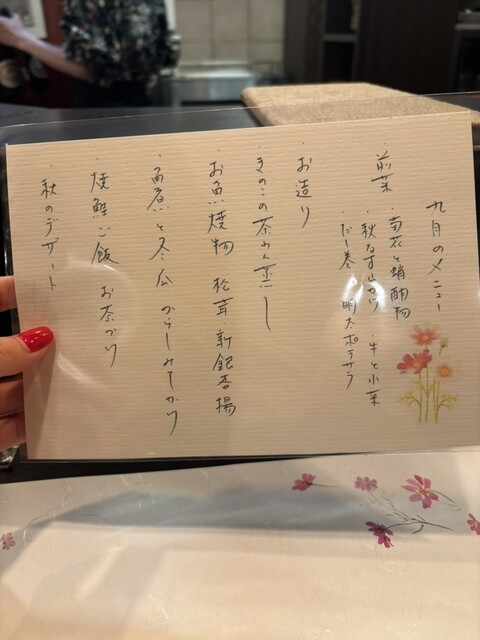 九月のメニュー
・前菜 ・菊花と蛸酢物
・秋なす山かけ ・牛と小菜
・だし巻 ・明太ポテサラ
・お造り
・きのこの茶わん蒸し
・お魚焼物 松茸・新銀杏揚
・角煮と冬瓜 からしみそかけ
・焼鮭ご飯 お茶づけ
・秋のデザート